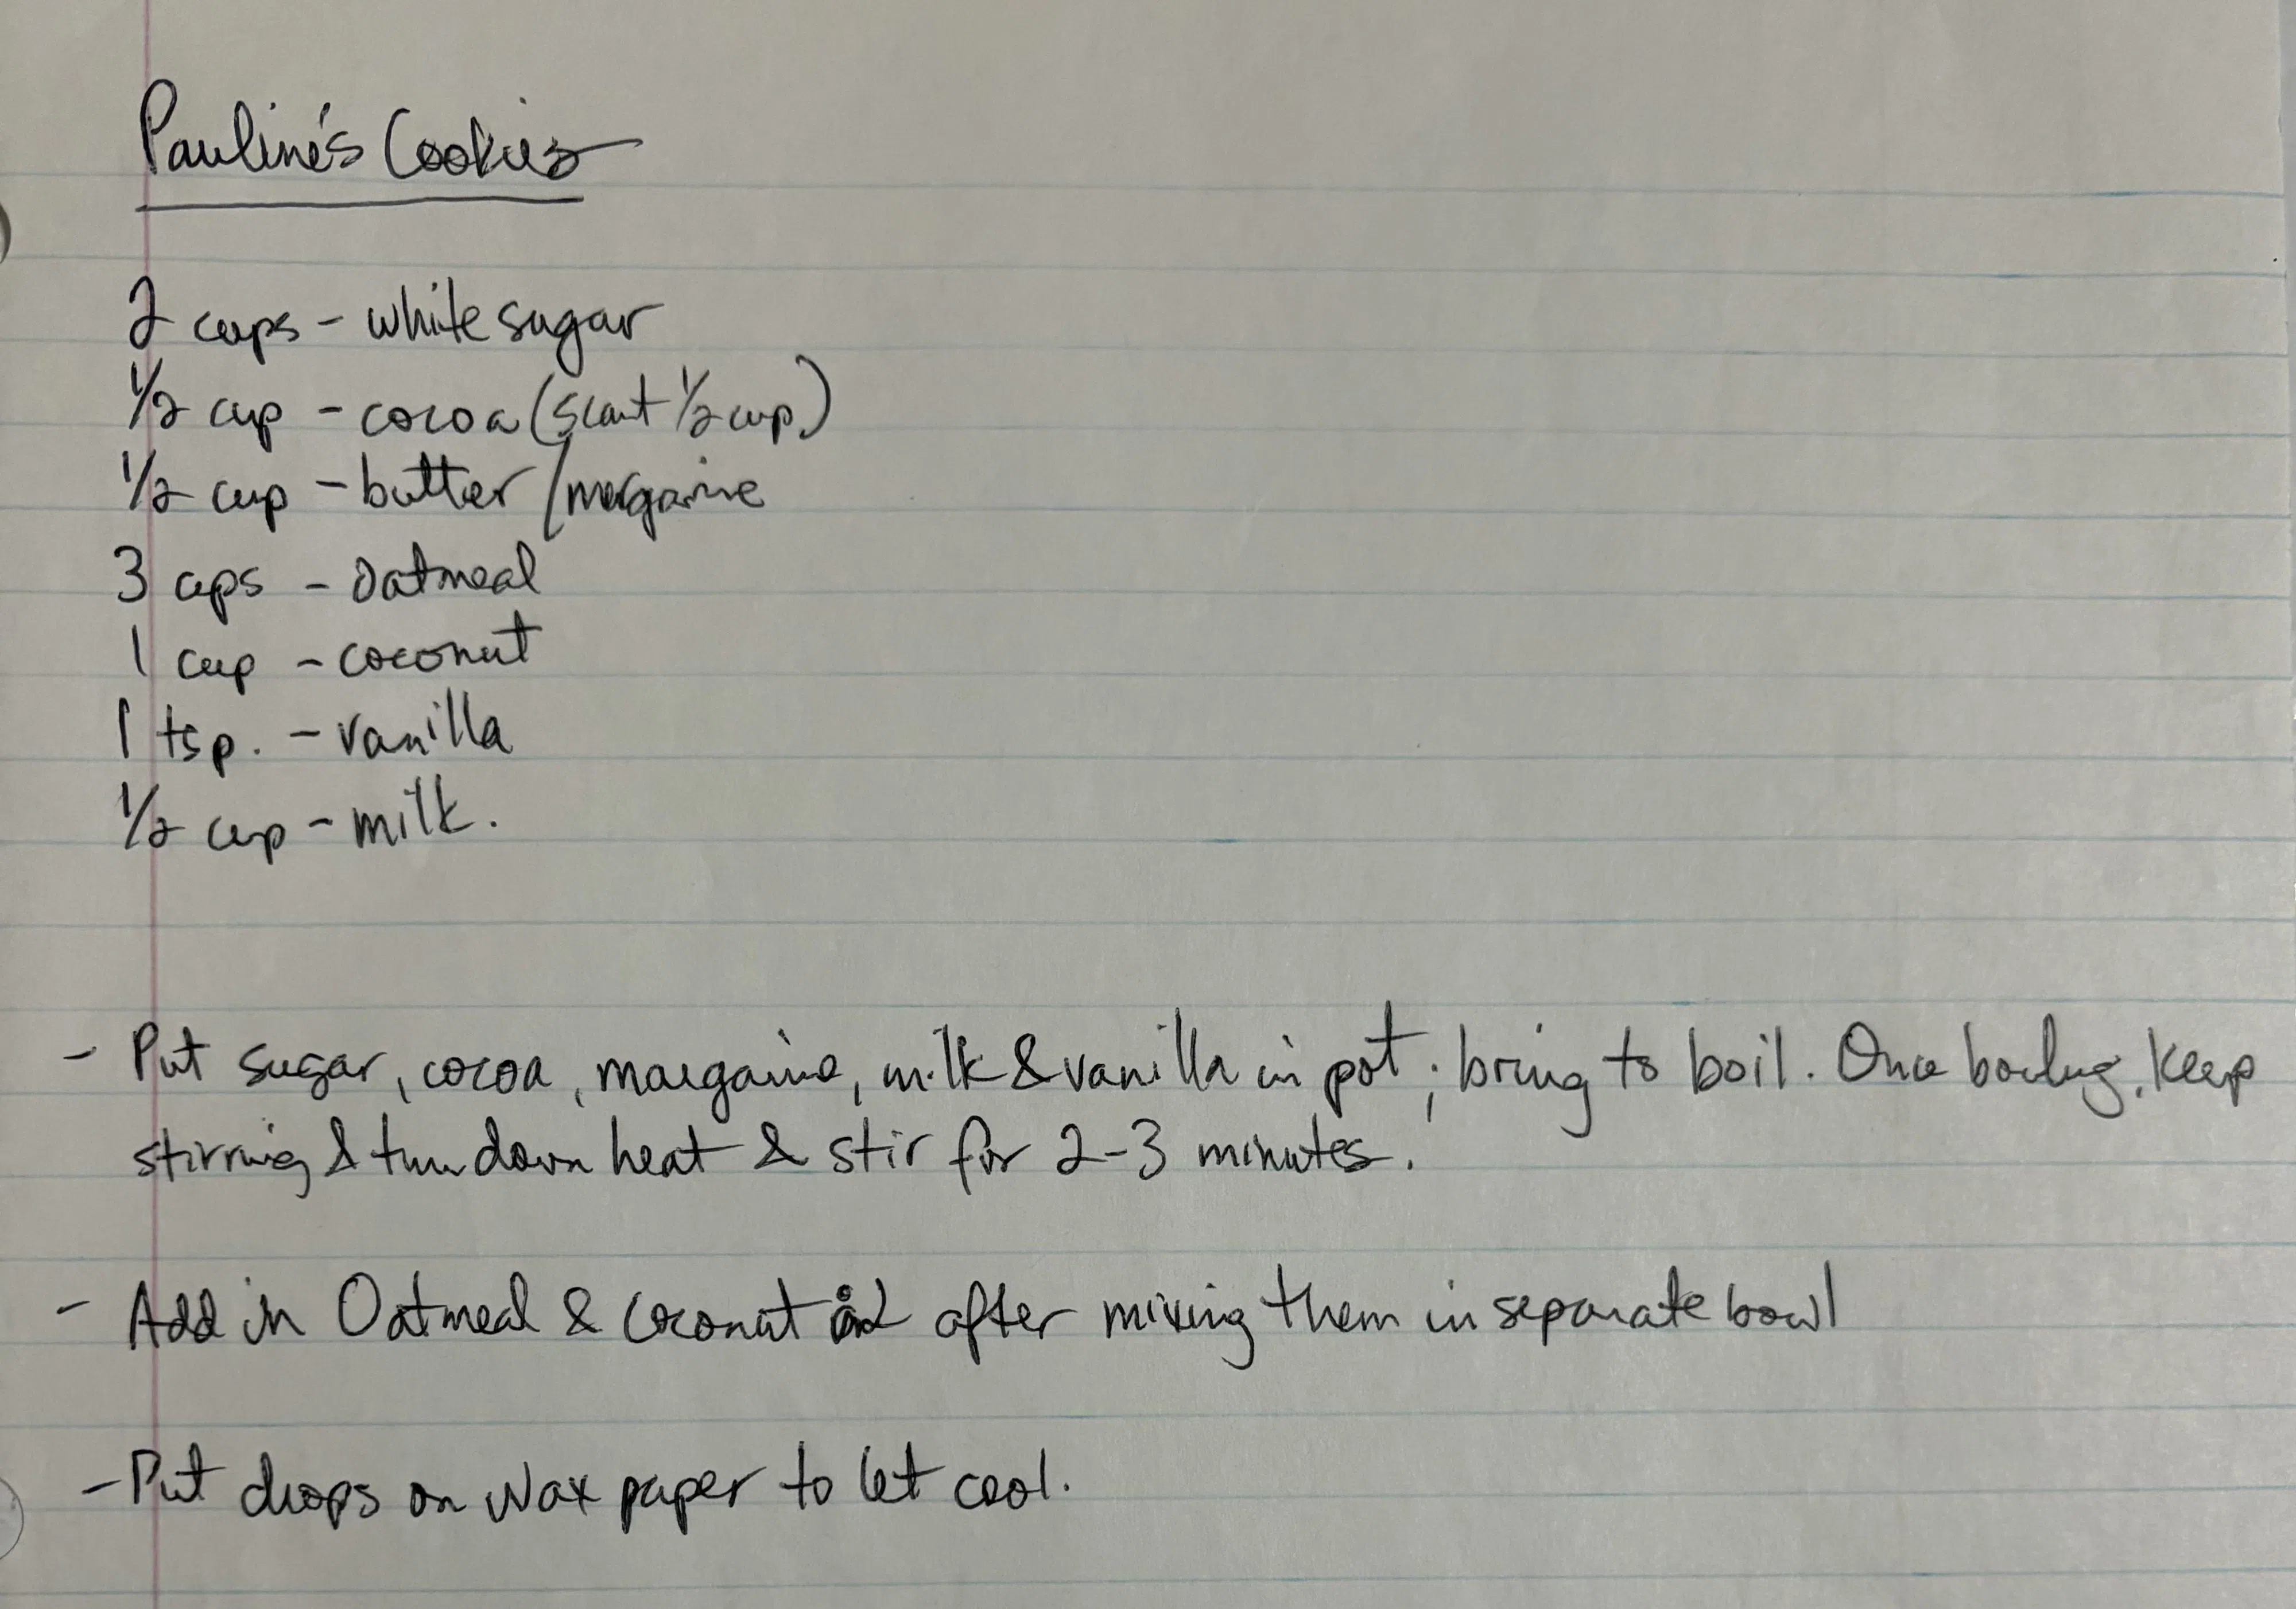 Pauline's Cookies
2 cups - white sugar
1/2 cup - cocoa (scant 1/2 cup)
1/2 cup - butter / margarine
3 cups - Oatmeal
1 cup - coconut
1 tsp. - vanilla
1/2 cup - milk.
- Put sugar, cocoa, margarine, milk & vanilla in pot; bring to boil. Once boiling, keep
stirring & turn down heat & stir for 2-3 minutes.
- Add in Oatmeal & Coconut after mixing them in separate bowl
- Put drops on wax paper to let cool.